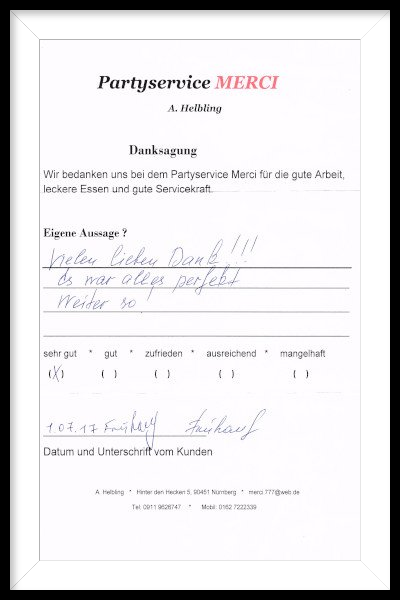 Partyservice MERCI
A. Helbling
Danksagung
Wir bedanken uns bei dem Partyservice Merci für die gute Arbeit,
leckere Essen und gute Servicekraft.
Eigene Aussage ?
Vielen lieben Dank !!!
es war alles perfekt
Weiter so !
sehr gut * gut * zufrieden * ausreichend * mangelhaft
(X) ( ) ( ) ( ) ( )
1.07.17 Frühauf Frühauf
Datum und Unterschrift vom Kunden
A. Helbling * Hinter den Hecken 5, 90451 Nürnberg * merci.777@web.de
Tel: 0911 9626747 * Mobil: 0162 7222339